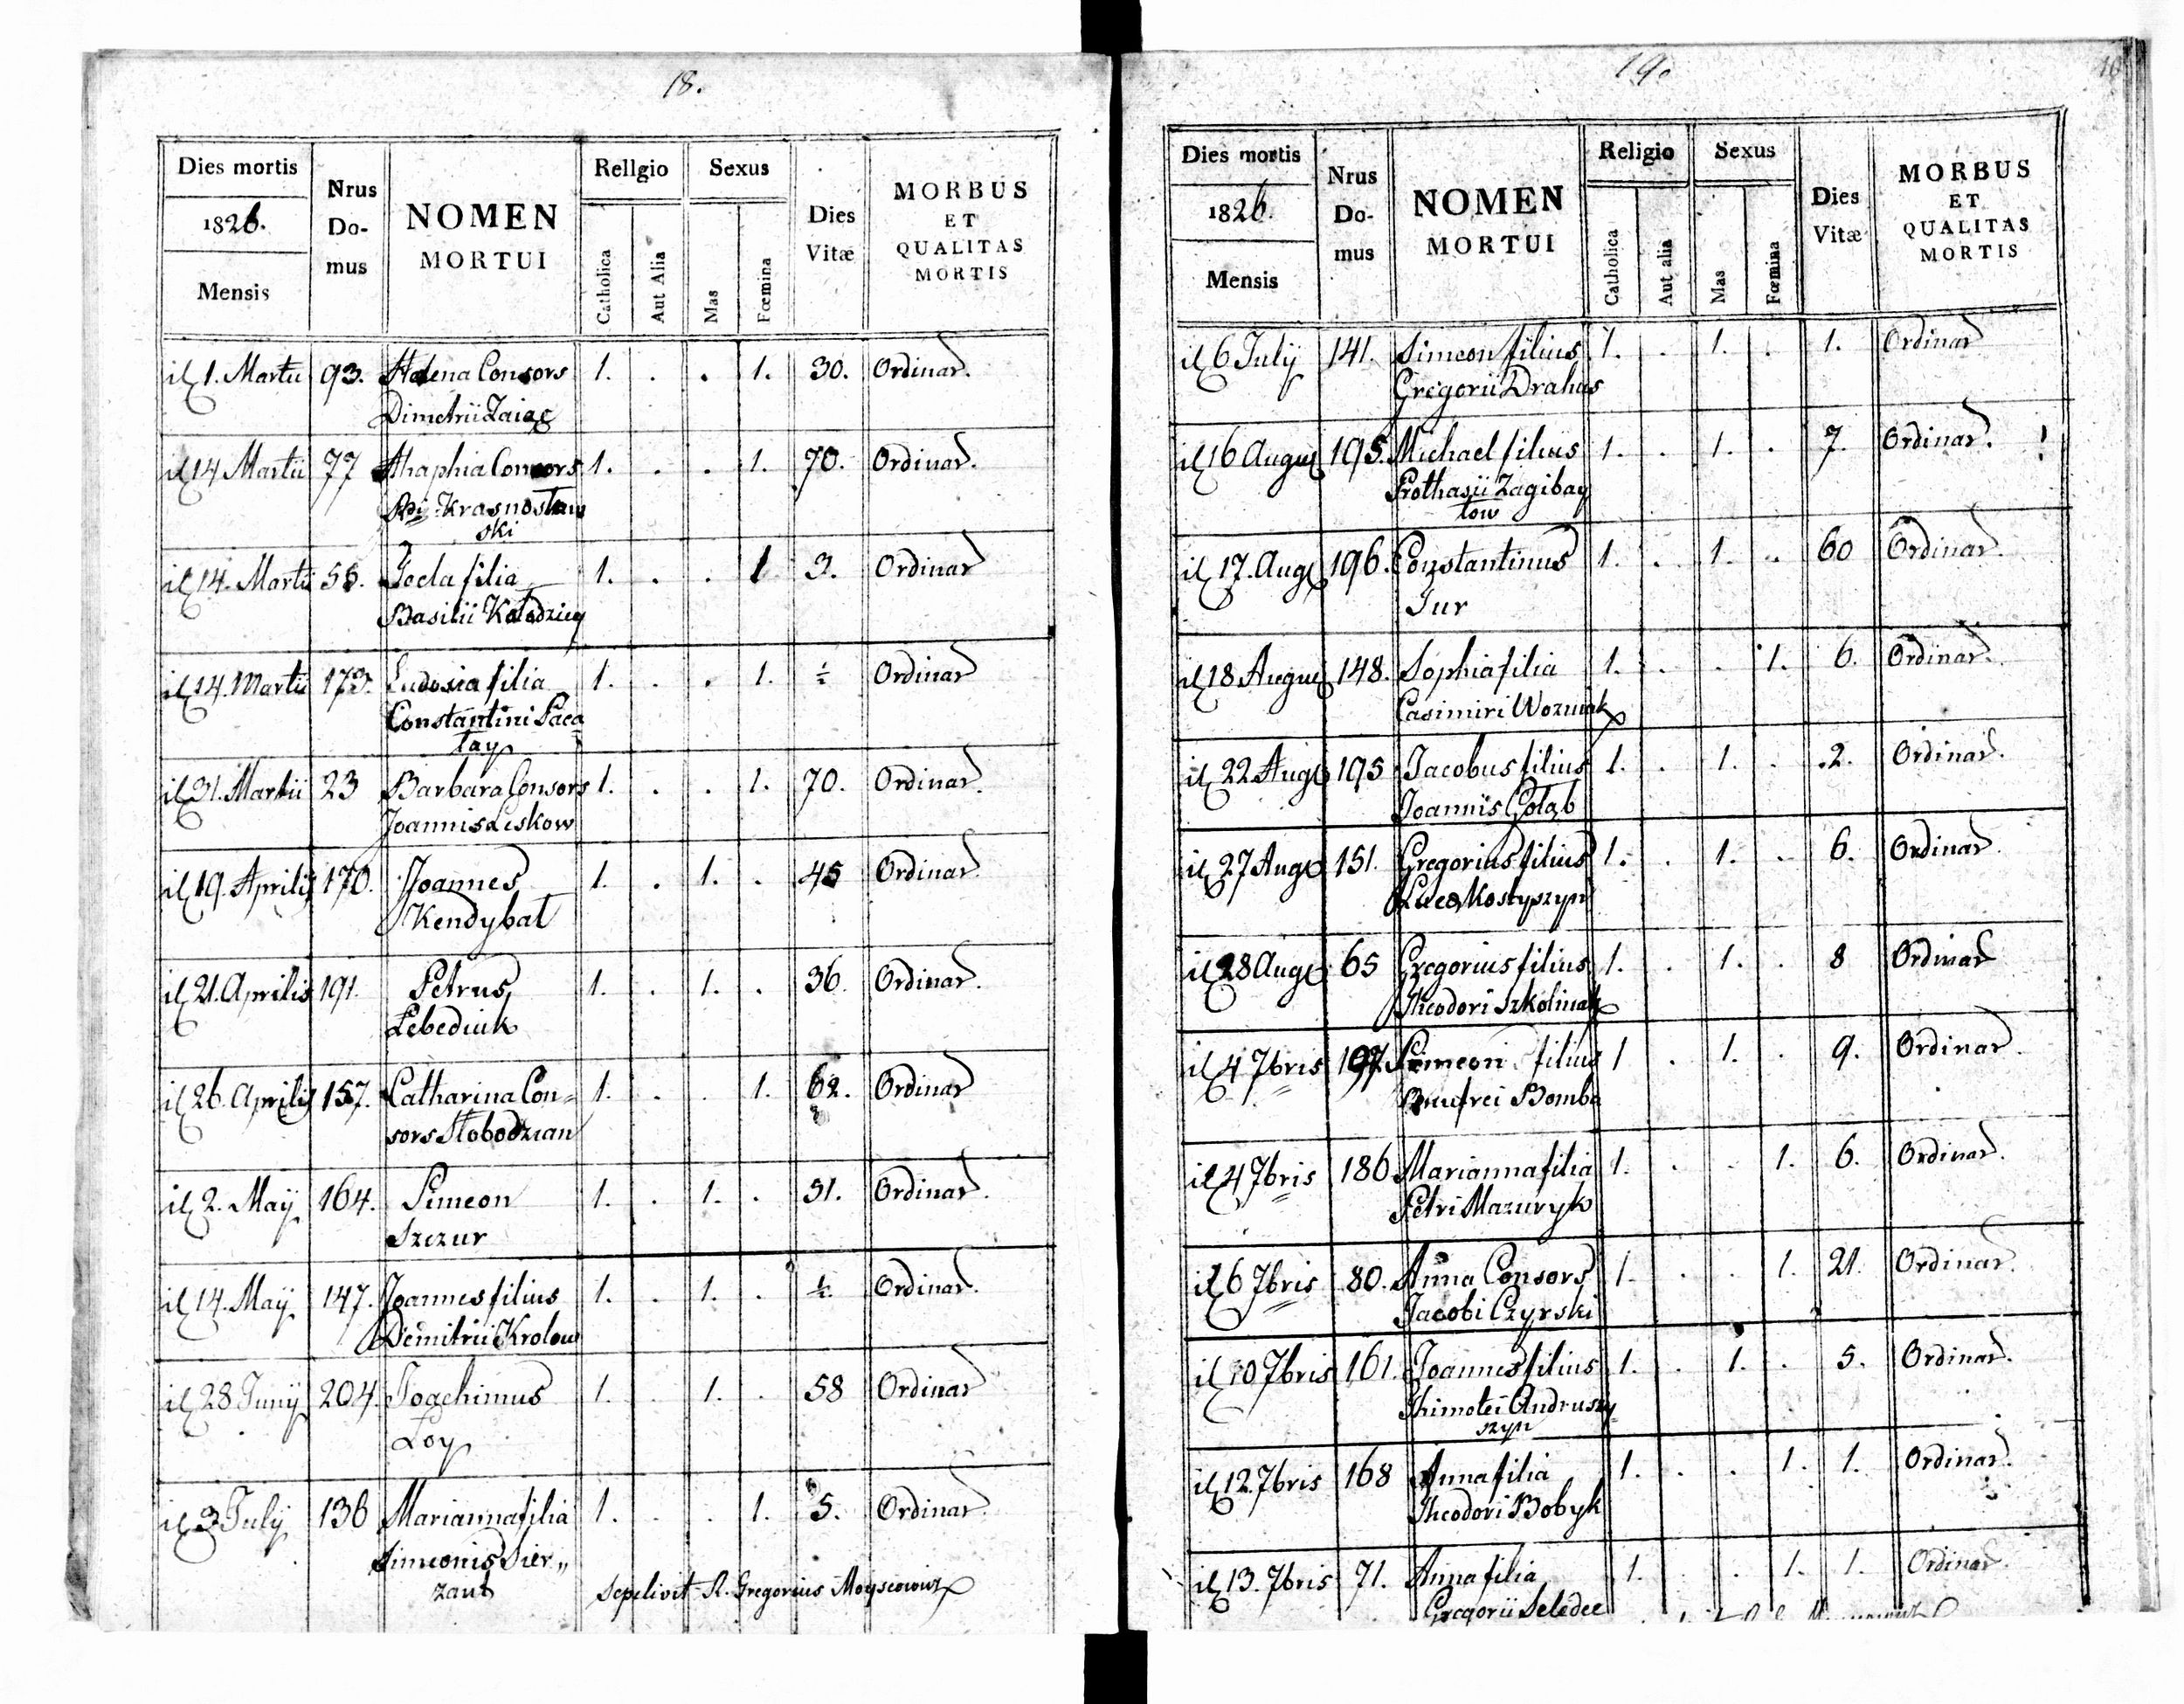 18.
Dies mortis
1826.
Mensis
Nrus
Do-
mus
NOMEN
MORTUI
Religio
Catholica
Aut Alia
Sexus
Mas
Fœmina
Dies
Vitæ
MORBUS
ET
QUALITAS
MORTIS
1. Martii 93. Helena Consors 1. . . 1. 30. Ordinar.
Dimetrii Zaiąc
14 Martii 77 Ahaphia Consors 1. . . 1. 70. Ordinar.
Krasnostaw
ski
14. Martii 55. Tecla filia 1. . . 1 3. Ordinar
Basilii Kołodziey
14. Martii 173. Eudoxia filia 1. . . 1. ½ Ordinar
Constantini Paca
łay
31. Martii 23 Barbara Consors 1. . . 1. 70. Ordinar.
Joannis Leskow
19. Aprilis 170. Joannes 1. . 1. . 45 Ordinar.
Kendybał
21. Aprilis 191. Petrus 1. . 1. . 36. Ordinar.
Lebediuk
26. Aprilis 157. Catharina Con= 1. . . 1. 62. Ordinar
sors Słobodzian
2. Maij 164. Simeon 1. . 1. . 51. Ordinar.
Szczur
14. Maij 147. Joannes filius 1. . 1. . ½. Ordinar.
Demitrii Krolow
28 Junij 204. Joachimus 1. . 1. . 58 Ordinar
Łoy
3 Julij 136 Marianna filia 1. . . 1. 5. Ordinar.
Simeonis Sier„
zant
Sepelivit R. Gregorius Moyseowicz
19.
Dies mortis
1826.
Mensis
Nrus
Do-
mus
NOMEN
MORTUI
Religio
Catholica
Aut alia
Sexus
Mas
Fœmina
Dies
Vitæ
MORBUS
ET
QUALITAS
MORTIS
6 Julij 141. Simeon filius 1. . 1. . 1. Ordinar
Gregorii Drahus
16 Augus 195. Michael filius 1. . 1. . 7. Ordinar.
Prothasii Zagibay
łow
17. Aug 196. Constantinus 1. . 1. . 60 Ordinar.
Jur
18 Augus 148. Sophia filia 1. . . 1. 6. Ordinar.
Casimiri Wozniak
22 Aug 195 Jacobus filius 1. . 1. . 2. Ordinar.
Joannis Gołąb
27 Aug 151. Gregorius filius 1. . 1. . 6. Ordinar.
Lucæ Kostyszyn
28 Aug 65 Gregorius filius 1. . 1. . 8 Ordinar
Theodori Szkolniak
4 7bris 197. Simeon filius 1 . 1. . 9. Ordinar.
Onufrei Bomba
4 7bris 186 Marianna filia 1. . . 1. 6. Ordinar.
Petri Mazuryk
6 7bris 80. Anna Consors 1. . . 1. 21. Ordinar.
Jacobi Czyrski
10 7bris 161. Joannes filius 1. . 1. . 5. Ordinar.
Thimotei Andruszy
szyn
12. 7bris 168 Anna filia 1. . . 1. 1. Ordinar.
Theodori Bobyk
13. 7bris 71. Anna filia 1. . . 1. 1. Ordinar.
Gregorii Seledec